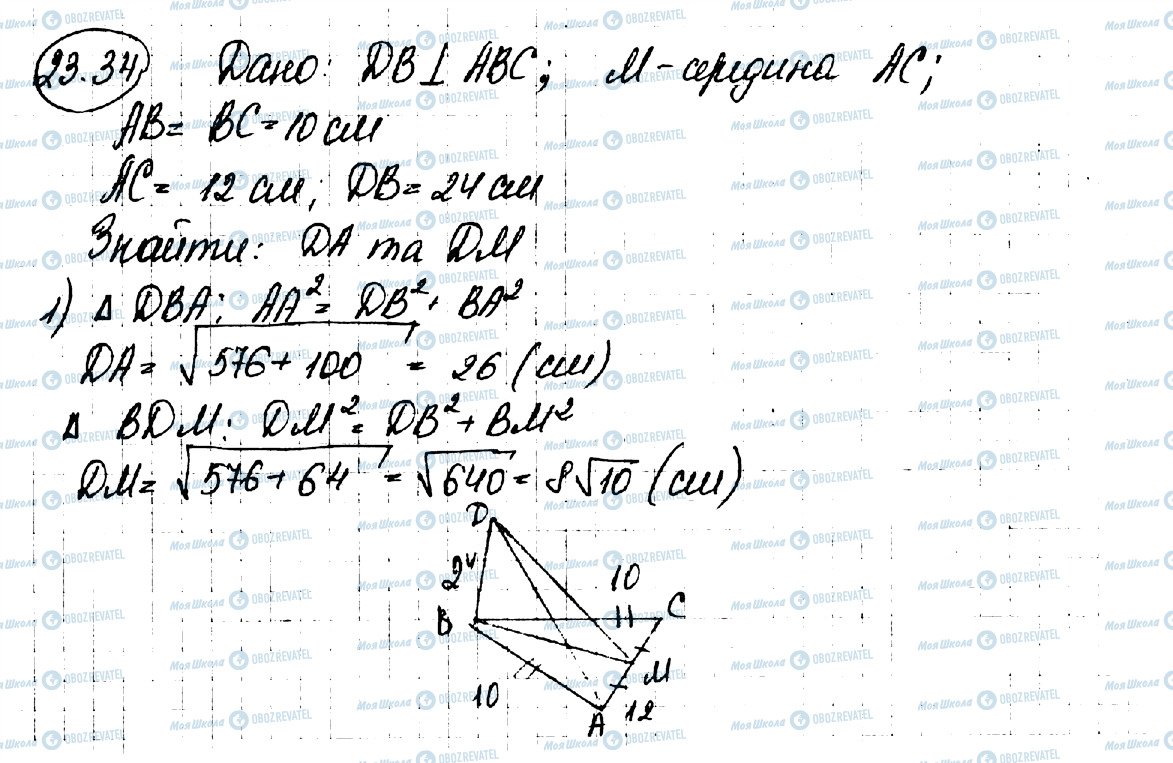 23.34, Дано: DB⊥ABC; М-середина АС;
АВ = ВС = 10 см
АС = 12 см; DB = 24 см
Знайти: DA та DM
1) Δ DBA: AA² = DB² + BA²
DA = √576 + 100 = 26 (см)
Δ BDM: DM² = DB² + BM²
DM = √576 + 64 = √640 = 8√10 (см)
D
24
10
B
C
M
10
A
12
Моя Школа OBOZREVATEL